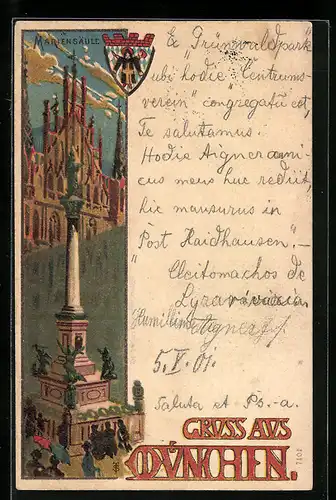 MARIENSÄULE
Ex "Grünwaldpark"
ubi hodie "Centrums-
verein" congregatus est,
Te salutamus.
Hodie Aigner ami-
cus meus huc rediit,
hic mansurus in
"Post Haidhausen".-
de
Aigner
5.V.01.
Saluta et Ps.-a.
GRUSS AUS
MÜNCHEN.